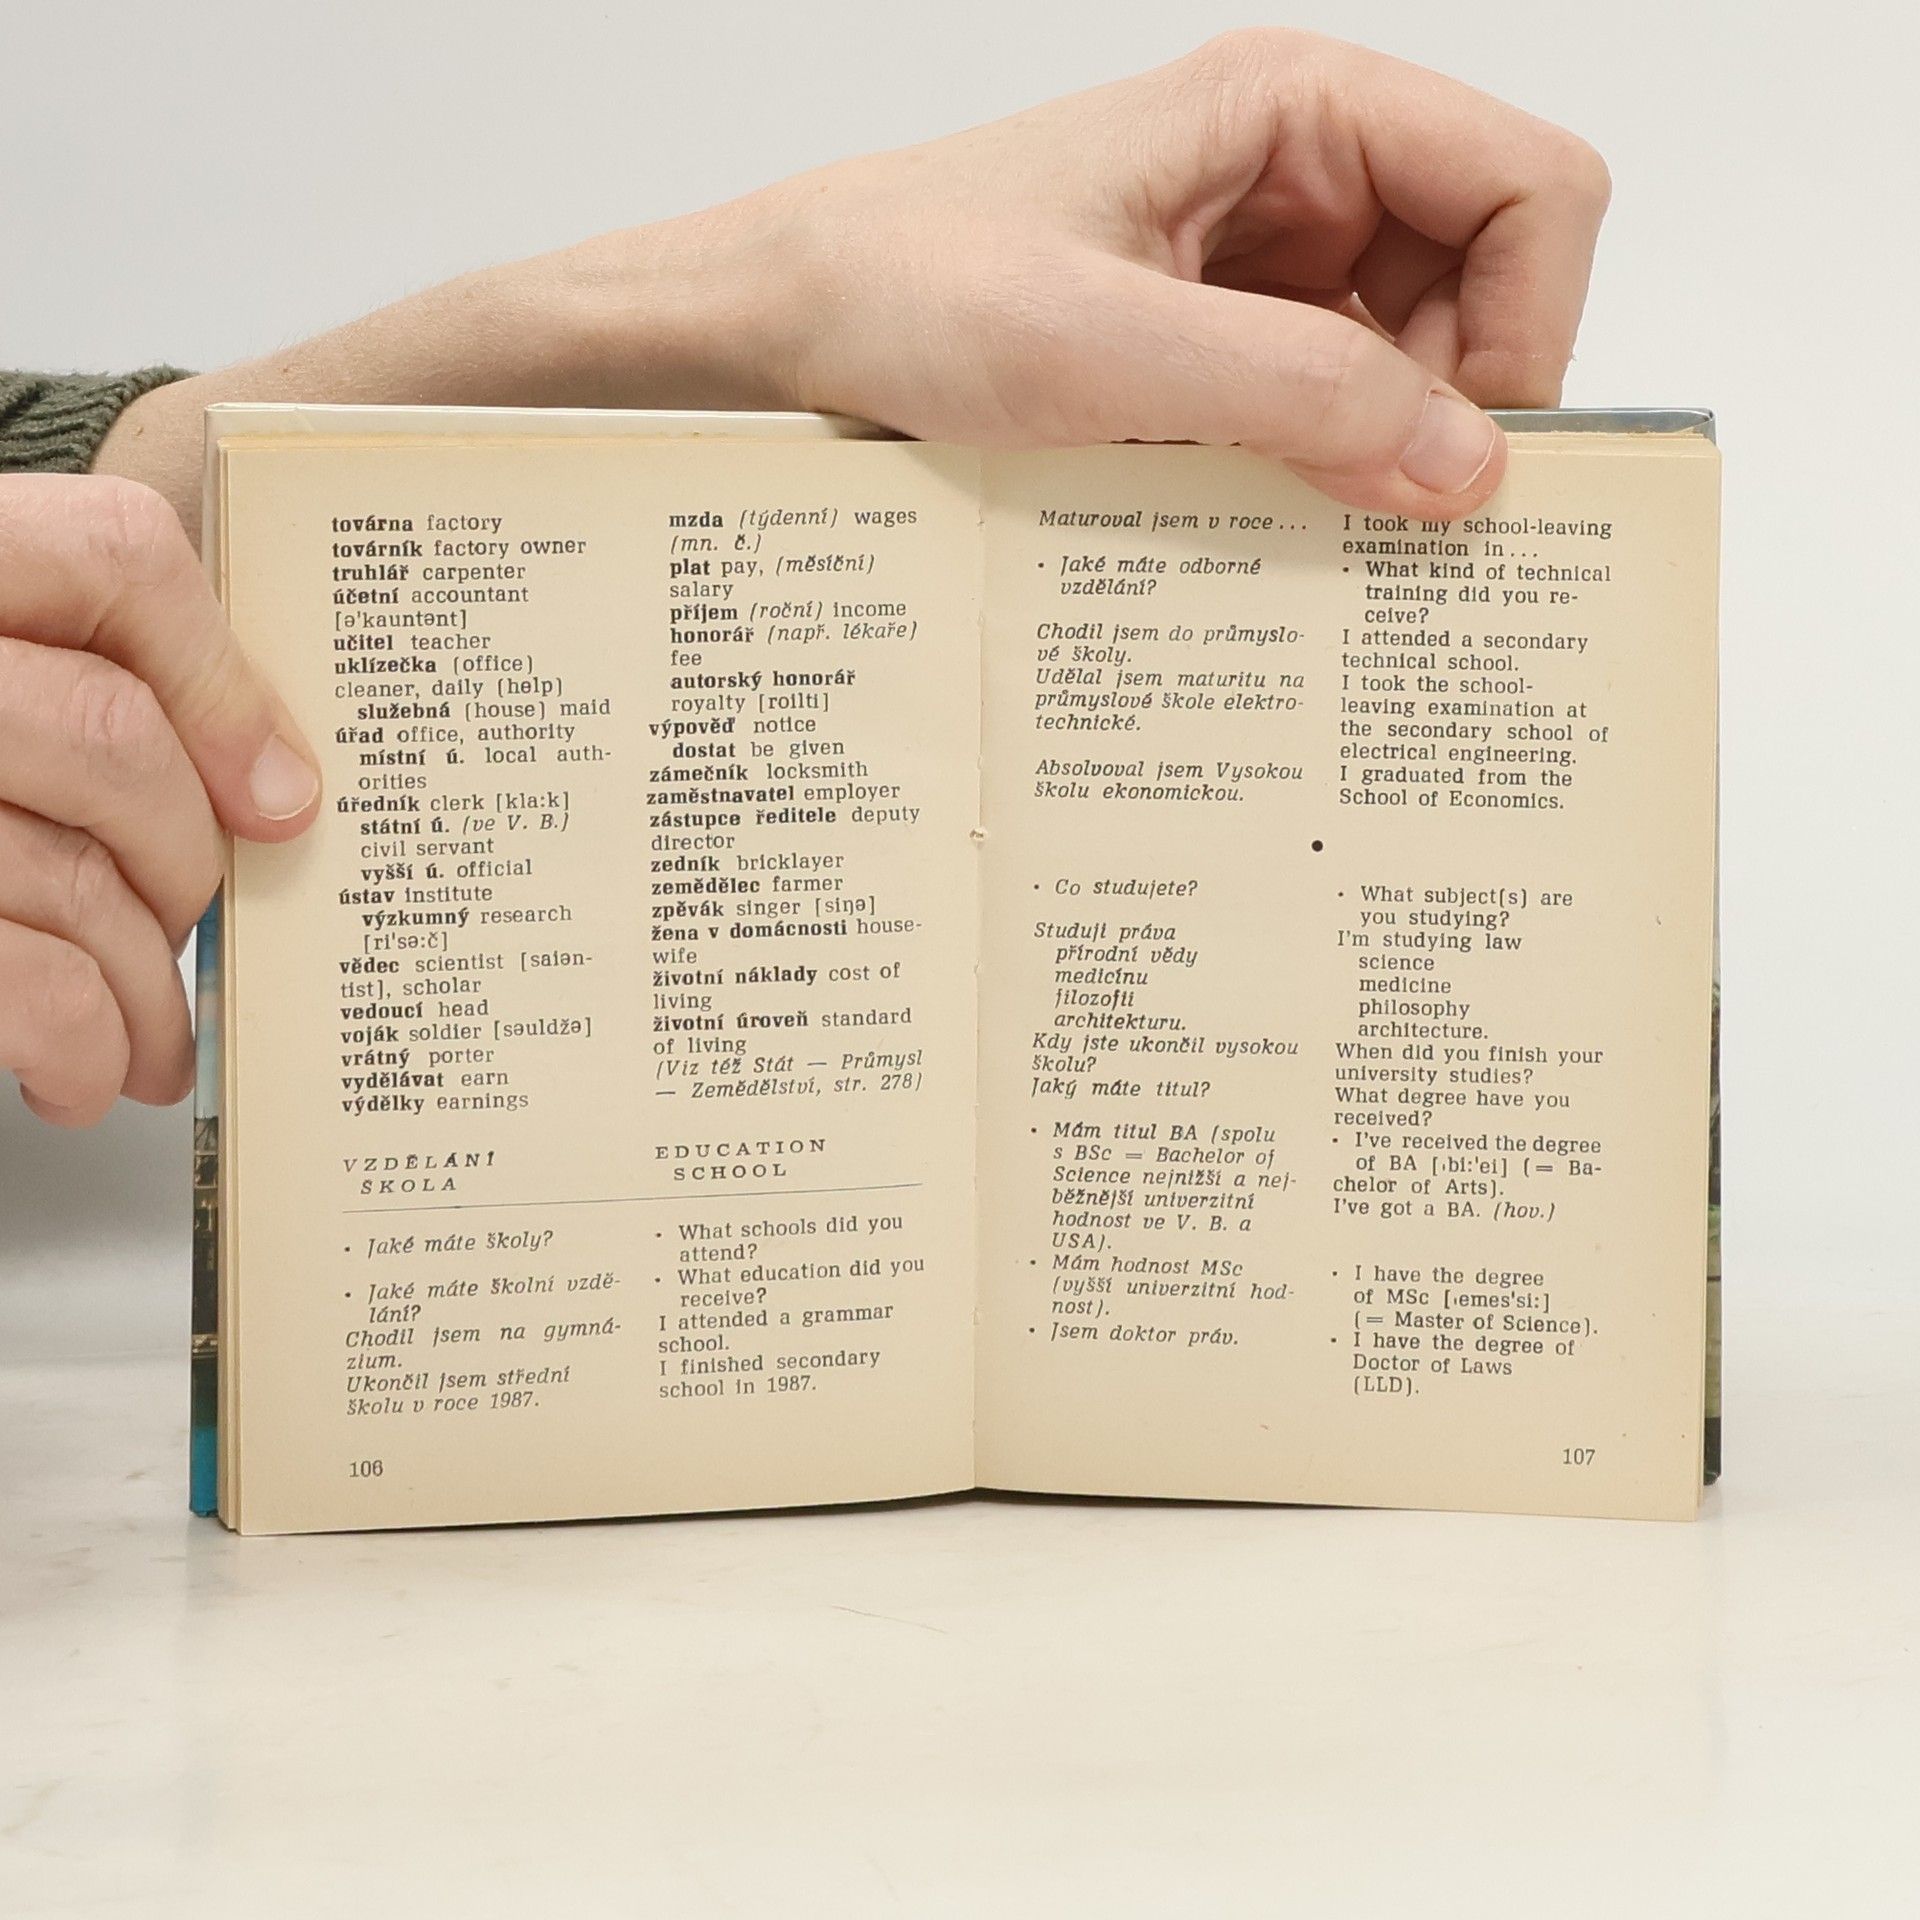 továrna factory
továrník factory owner
truhlář carpenter
účetní accountant
[ə'kauntənt]
učitel teacher
uklízečka (office)
cleaner, daily (help)
služebná (house) maid
úřad office, authority
místní ú. local auth-
orities
úředník clerk [kla:k]
státní ú. (ve V. B.)
civil servant
vyšší ú. official
ústav institute
výzkumný research
[ri'sə:č]
vědec scientist [saiən-
tist], scholar
vedoucí head
voják soldier [səuldžə]
vrátný porter
vydělávat earn
výdělky earnings
mzda (týdenní) wages
(mn. č.)
plat pay, (měsíční)
salary
příjem (roční) income
honorář (např. lékaře)
fee
autorský honorář
royalty [roilti]
výpověď notice
dostat be given
zámečník locksmith
zaměstnavatel employer
zástupce ředitele deputy
director
zedník bricklayer
zemědělec farmer
zpěvák singer [siŋə]
žena v domácnosti house-
wife
životní náklady cost of
living
životní úroveň standard
of living
(Viz též Stát — Průmysl
— Zemědělství, str. 278)
VZDĚLÁNÍ
ŠKOLA
EDUCATION
SCHOOL
• Jaké máte školy?
• Jaké máte školní vzdě-
lání?
Chodil jsem na gymná-
zium.
Ukončil jsem střední
školu v roce 1987.
• What schools did you
attend?
• What education did you
receive?
I attended a grammar
school.
I finished secondary
school in 1987.
106
Maturoval jsem v roce ...
• Jaké máte odborné
vzdělání?
Chodil jsem do průmyslo-
vé školy.
Udělal jsem maturitu na
průmyslové škole elektro-
technické.
Absolvoval jsem Vysokou
školu ekonomickou.
I took my school-leaving
examination in ...
• What kind of technical
training did you re-
ceive?
I attended a secondary
technical school.
I took the school-
leaving examination at
the secondary school of
electrical engineering.
I graduated from the
School of Economics.
•
• Co studujete?
Studuji práva
přírodní vědy
medicínu
filozofii
architekturu.
Kdy jste ukončil vysokou
školu?
Jaký máte titul?
• Mám titul BA (spolu
s BSc = Bachelor of
Science nejnižší a nej-
běžnější univerzitní
hodnost ve V. B. a
USA).
• Mám hodnost MSc
(vyšší univerzitní hod-
nost).
• Jsem doktor práv.
• What subject(s) are
you studying?
I'm studying law
science
medicine
philosophy
architecture.
When did you finish your
university studies?
What degree have you
received?
• I've received the degree
of BA [ˌbi:'ei] (= Ba-
chelor of Arts).
I've got a BA. (hov.)
• I have the degree
of MSc [ˌemes'si:]
(= Master of Science).
• I have the degree of
Doctor of Laws
(LLD).
107